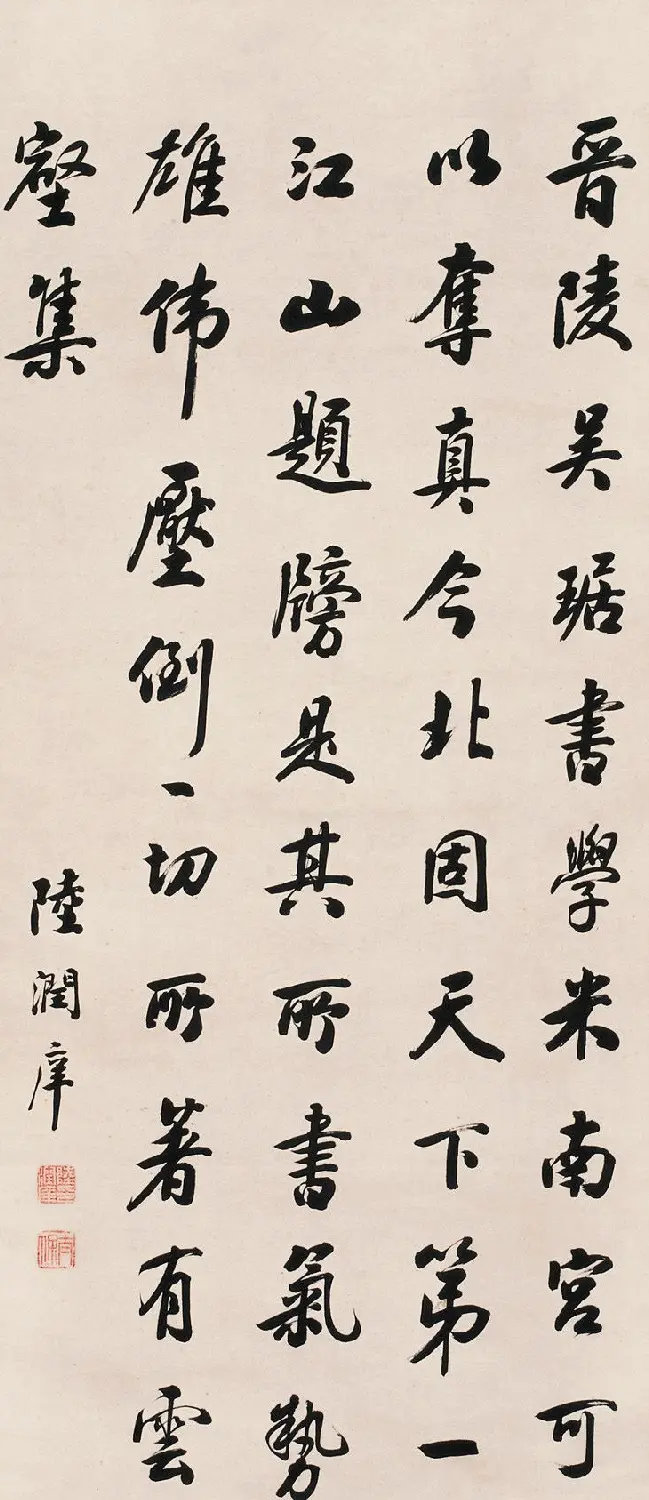 晋陵吴琚書學米南宫可
以奪真今北固天下第一
江山題牓是其所書氣勢
雄伟壓倒一切所著有雲
壑集
陸潤庠